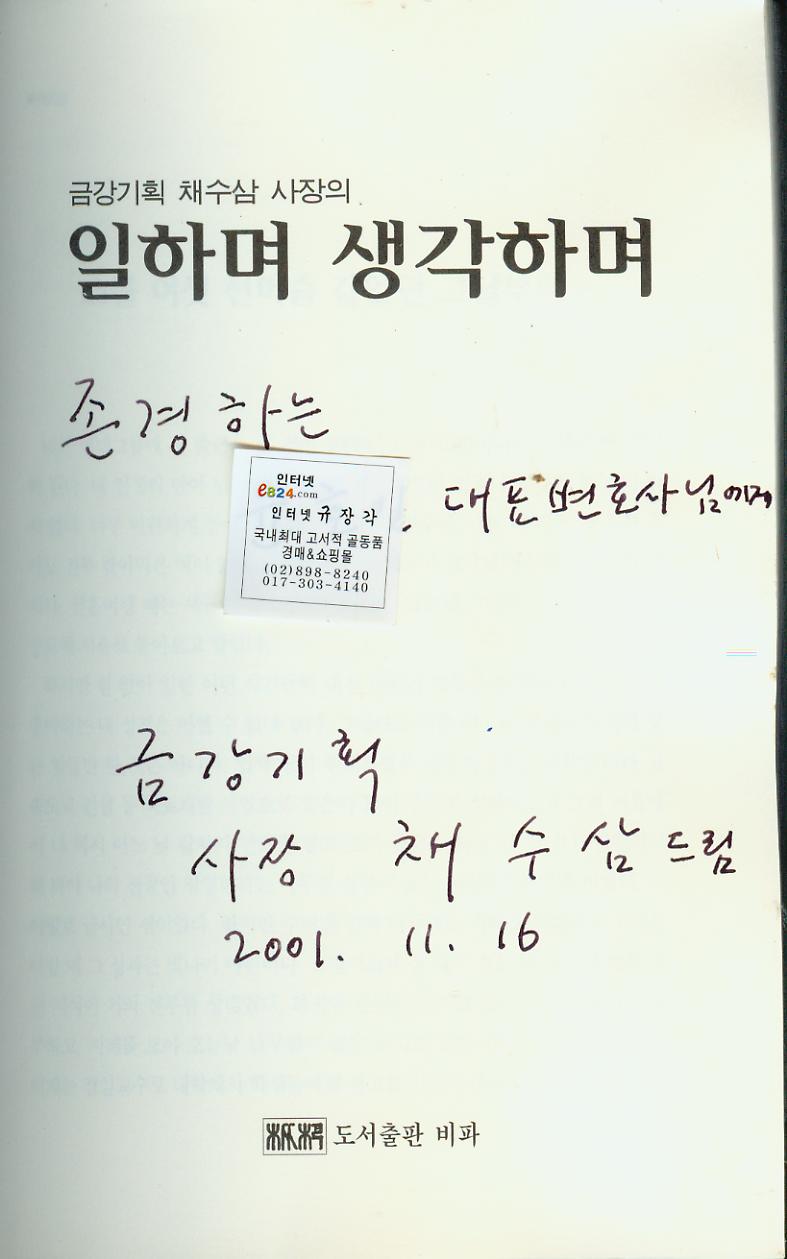 금강기획 채수삼 사장의
일하며 생각하며
존경하는
인터넷
eB24.com
인터넷 규장각
국내최대 고서적 골동품
경매&쇼핑몰
(02)898-8240
017-303-4140
대표변호사님에게
금강기획
사장 채수삼 드림
2001. 11. 16
도서출판 비파